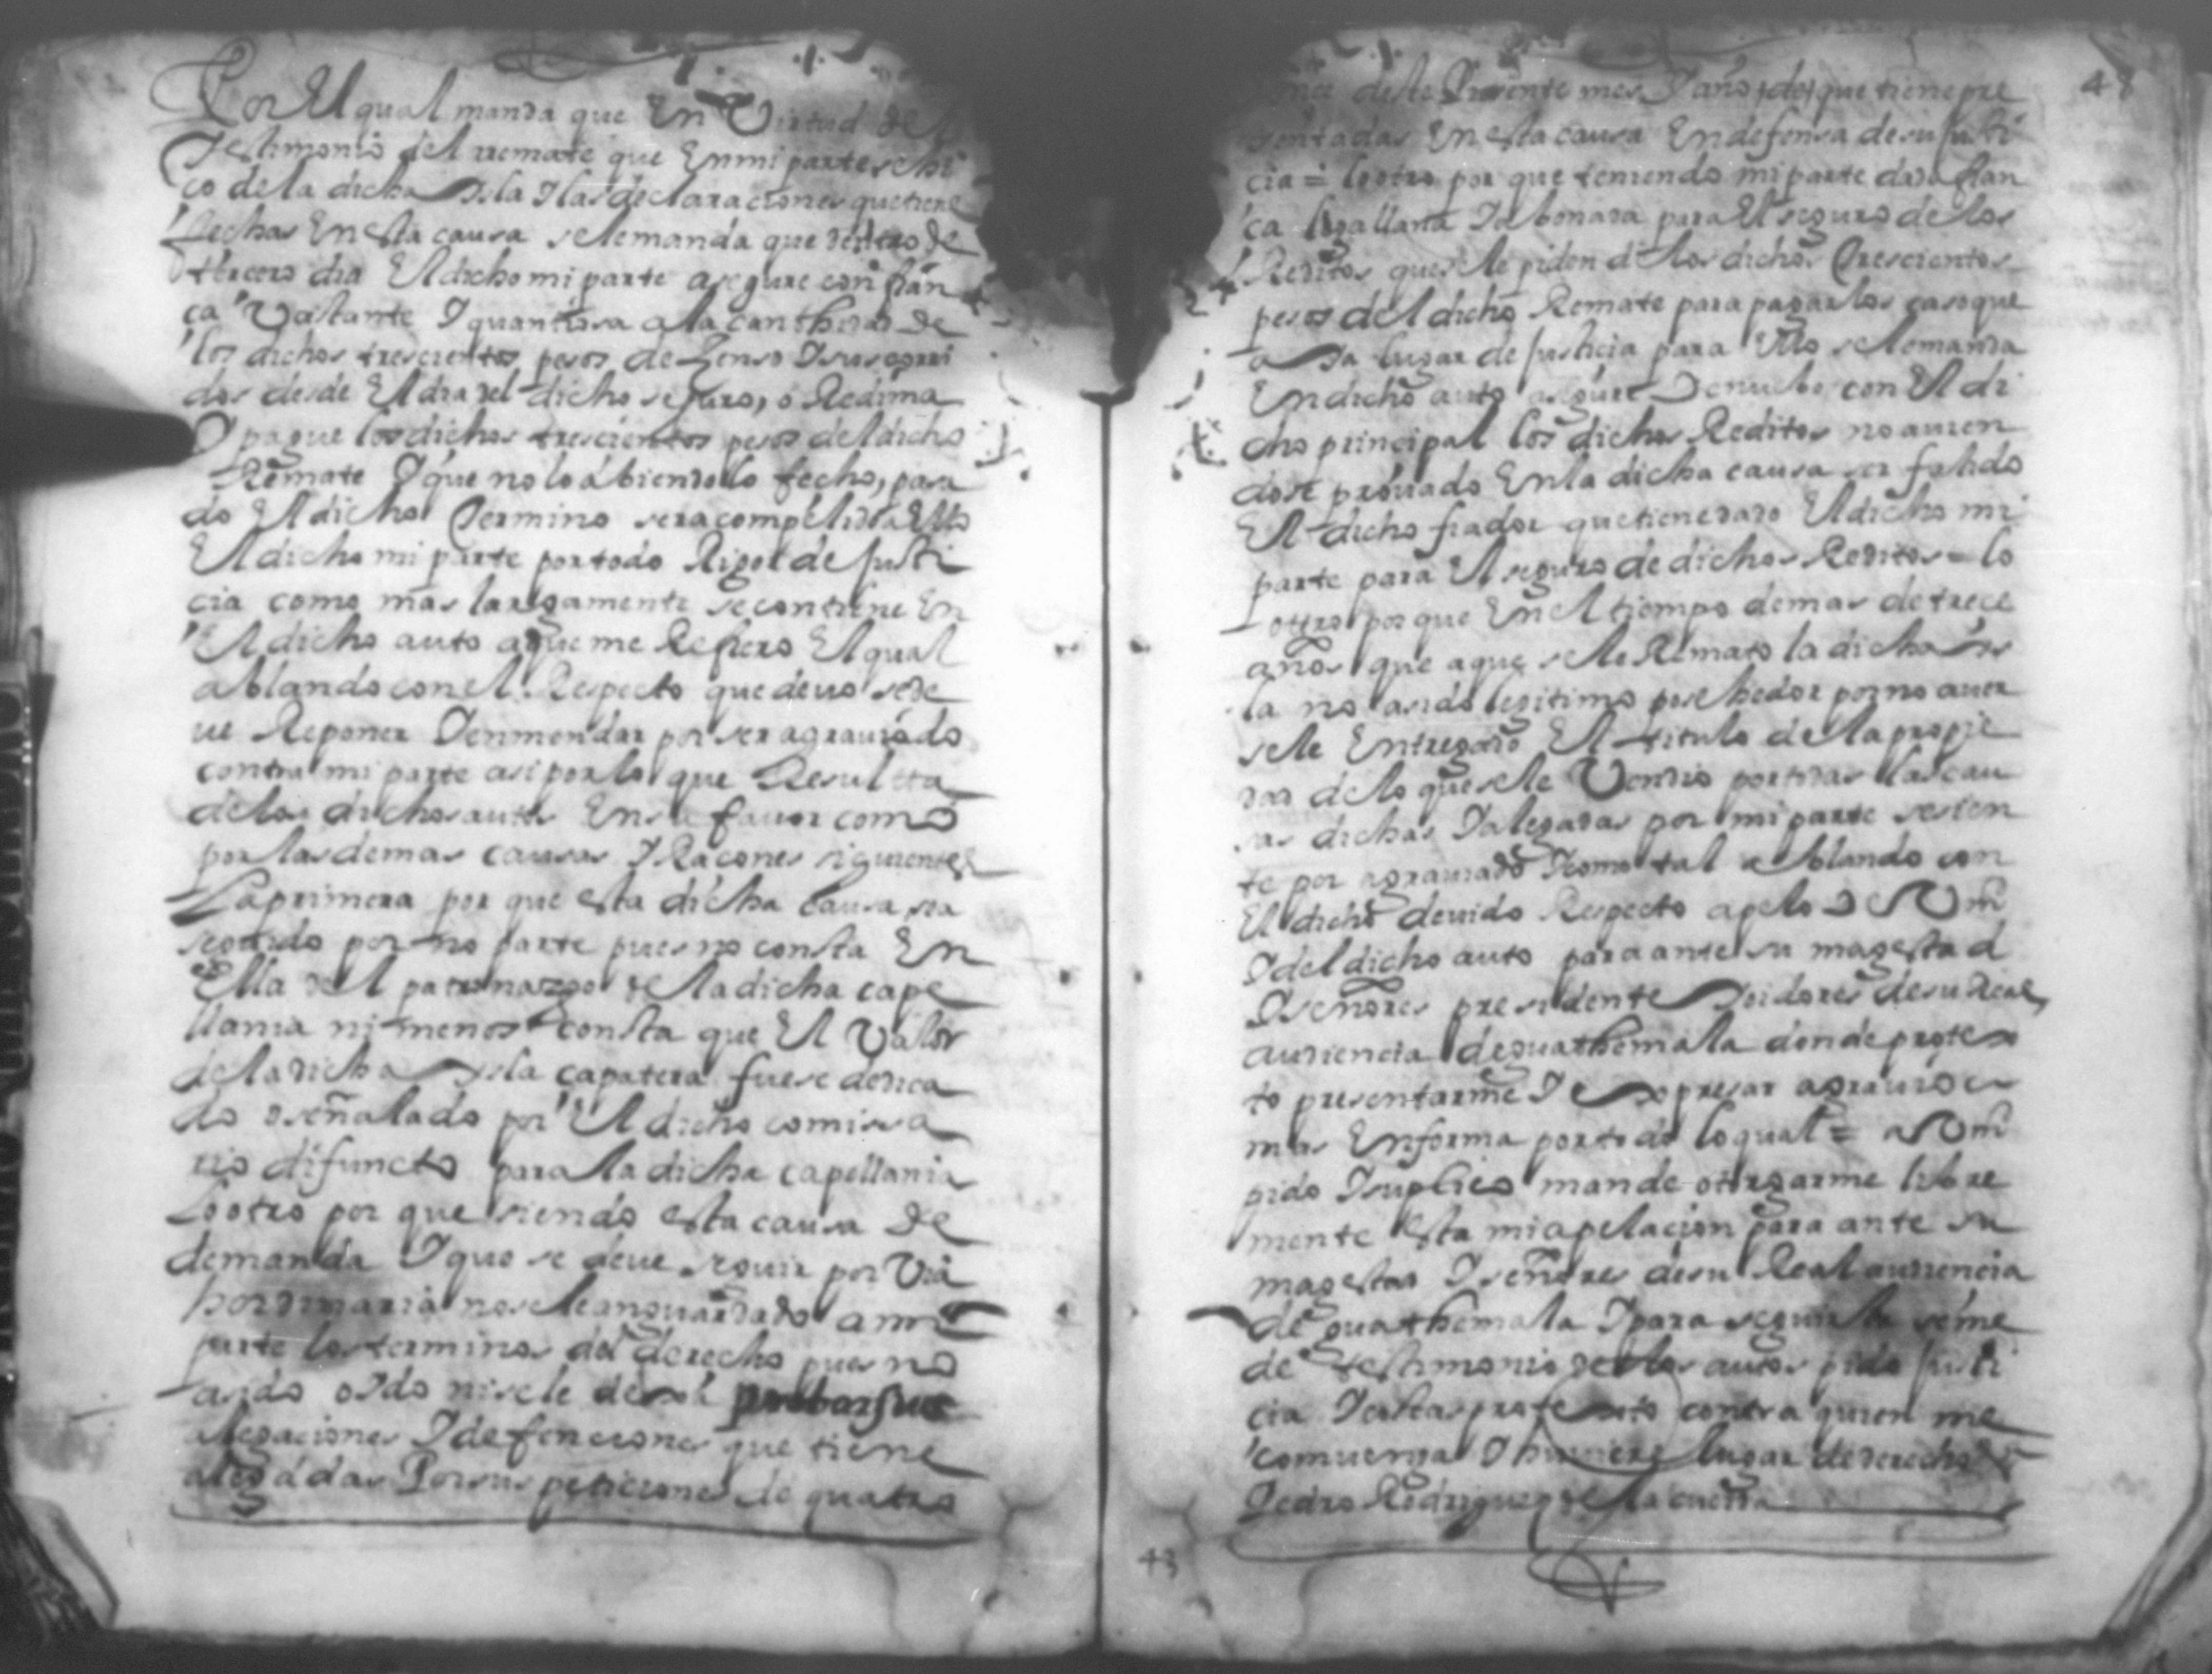 Por El qual manda que En Virtud del
Testimonio del rremate que En mi parte se hi
ço de la dicha Isla I las declaraciones que tiene
fechas En esta causa se le manda que dentro de
tercero dia El dicho mi parte asegure con fian
ça Vastante I quantiosa a la canthidad de
los dichos trescientos pesos de Zenso I sus corri
dos desde El dia del dicho seguro, o Redima
I pague los dichos trescientos pesos del dicho
Remate I que no lo abiendolo fecho, pasa
do El dicho Termino sera compelido a Ello
El dicho mi parte por todo Rigor de justi
cia como mas largamente se contiene En
El dicho auto a que me Refiero El qual
ablando con el Respecto que devo se de
ue Reponer I enmendar por ser agrauiado
contra mi parte asi por lo que Resultta
de los dichos autos En su fauor como
por las demas causas I Raçones siguientes
La primera por que esta dicha Causa sea
seguido por no parte pues no consta En
Ella del patronazgo de la dicha cape
llania ni menos consta que El Valor
de la dicha Isla çapatera fuese dedica
do o señalado por El dicho comissa
rio difuncto para la dicha capellania
Lo otro por que siendo esta causa de
demanda I que se deue seguir por Via
hordinaria no se le an guardado a mi
parte los terminos del derecho pues no
a sido oido ni se le dejó probar sus
alegaciones I defenciones que tiene
alegádas Por sus peticiones de quatro
48
once deste Presente mes I año, de que tiene pre
sentadas En esta causa En defensa de su justi
cia = lo otro por que teniendo mi parte dada fian
ça legallana I abonada para El seguro de los
Reditos que se le piden de los dichos Trescientos
pesos del dicho Remate para pagarlos caso que
aya lugar de justicia para Ello se le manda
En dicho auto asegure De nuebo con El di
cho principal los dichos Reditos no auien
dose prouado En la dicha causa ser falido
El dicho fiador que tiene dado El dicho mi
parte para El seguro de dichos Reditos = lo
ottro por que En el tiempo de mas de trece
años que a que se le Remato la dicha Is
la no a sido legitimo posehedor por no auer
sele Entregado El titulo de la propie
dad de lo que se le Vendio por todas las cau
sas dichas I alegadas por mi parte se sien
te por agrauiado I como tal ablando con
El dicho deuido Respecto apelo De Vm
I del dicho auto para ante su magestad
I señores presidente I oidores de su Real
audiencia de guathemala donde protes
to presentarme I Expresar agrauios
mas En forma por todo lo qual = a Vm
pido I suplico mande otorgarme libre
mente esta mi apelaçion para ante su
magestad I señores de su Real audiencia
de guathemala I para seguirla se me
de testimonio de los autos pido justi
cia I costas protesto contra quien me
comuenga I huuiere lugar de derecho
Pedro Rodriguez de la cueua
43